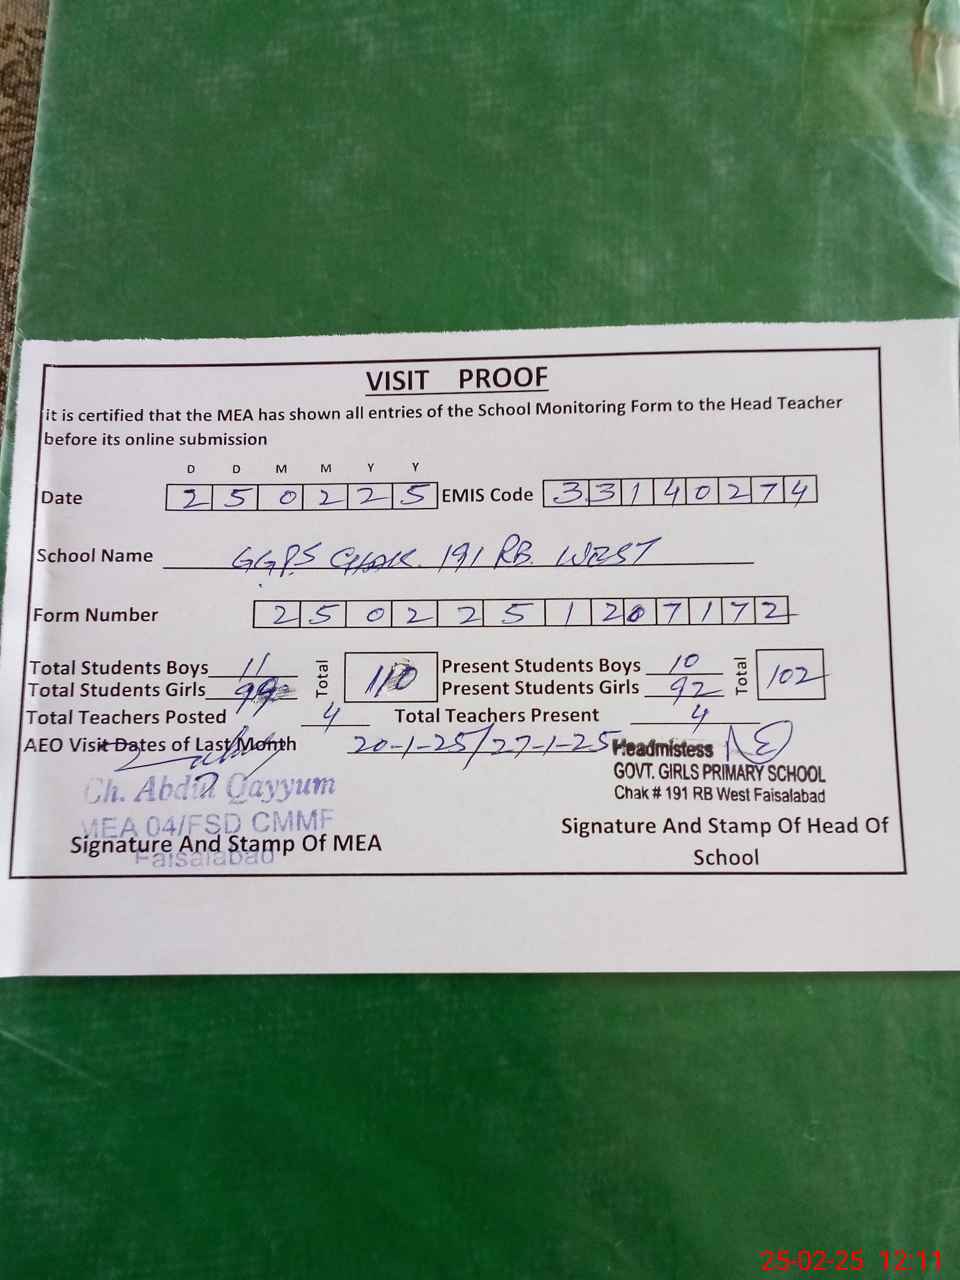 VISIT PROOF
it is certified that the MEA has shown all entries of the School Monitoring Form to the Head Teacher
before its online submission
D D M M Y Y
Date 2 5 0 2 2 5 EMIS Code 3 3 1 4 0 2 7 4
School Name GGPS CHAK. 191 RB. WEST
Form Number 2 5 0 2 2 5 1 2 0 7 1 7 2
Total Students Boys 11 Total 110 Present Students Boys 10 Total 102
Total Students Girls 99 Present Students Girls 92
Total Teachers Posted 4 Total Teachers Present 4
AEO Visit Dates of Last Month 20-1-25/27-1-25 Headmistess
Ch. Abdul Qayyum GOVT. GIRLS PRIMARY SCHOOL
MEA 04/FSD CMMF Chak # 191 RB West Faisalabad
Faisalabad
Signature And Stamp Of MEA Signature And Stamp Of Head Of
School
25-02-25 12:11